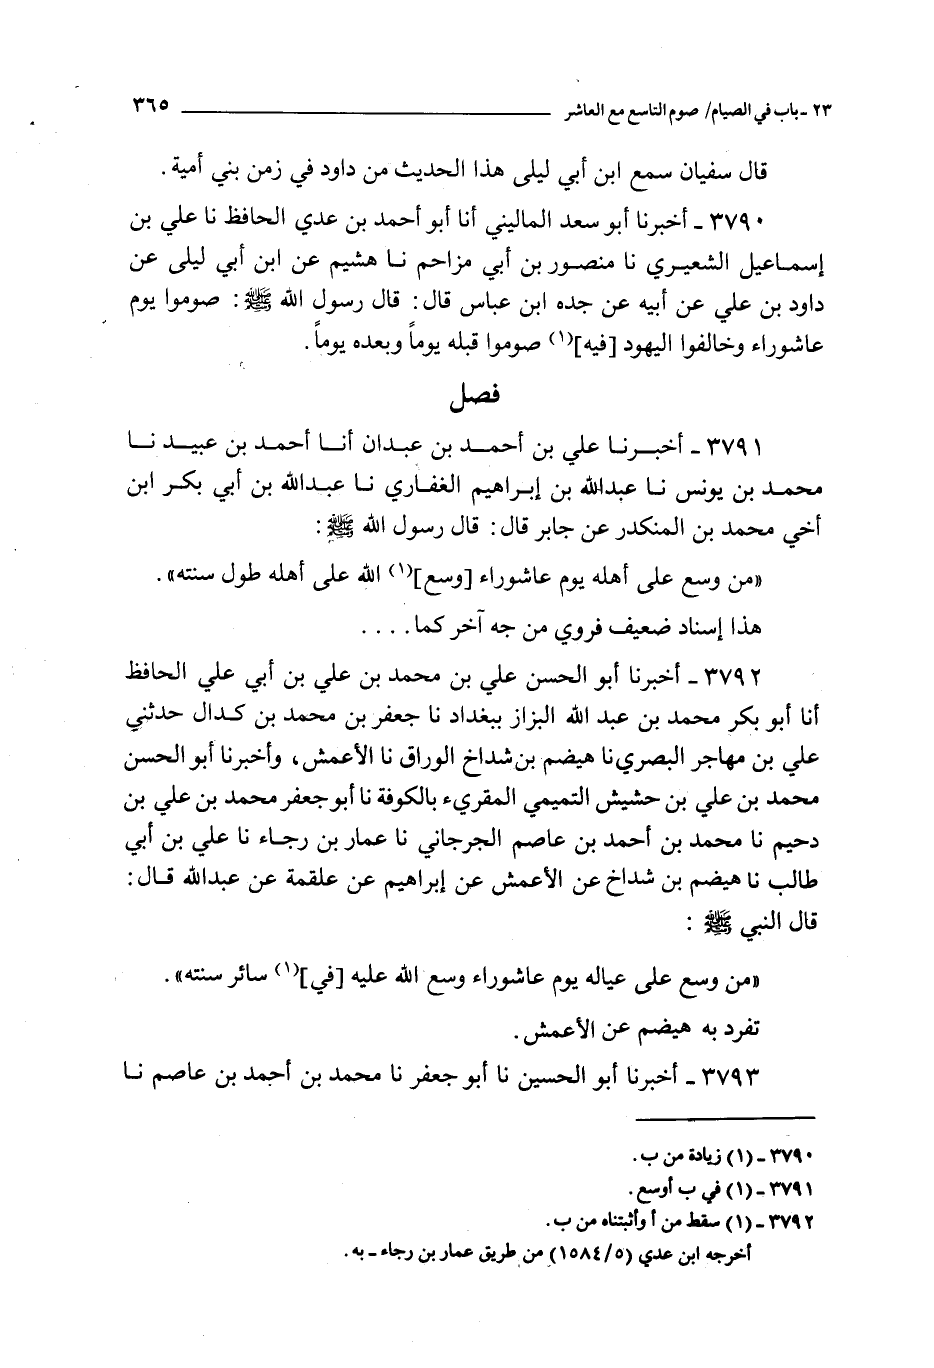 ٢٣ - باب في الصيام/ صوم التاسع مع العاشر ٣٦٥
قال سفيان سمع ابن أبي ليلى هذا الحديث من داود في زمن بني أمية.
٣٧٩٠ - أخبرنا أبو سعد الماليني أنا أبو أحمد بن عدي الحافظ نا علي بن
إسماعيل الشعيري نا منصور بن أبي مزاحم نا هشيم عن ابن أبي ليلى عن
داود بن علي عن أبيه عن جده ابن عباس قال: قال رسول الله ﷺ: صوموا يوم
عاشوراء وخالفوا اليهود [فيه](١) صوموا قبله يوماً وبعده يوماً.
فصل
٣٧٩١ - أخبرنا علي بن أحمد بن عبدان أنا أحمد بن عبيد نا
محمد بن يونس نا عبدالله بن إبراهيم الغفاري نا عبدالله بن أبي بكر ابن
أخي محمد بن المنكدر عن جابر قال: قال رسول الله ﷺ:
«من وسع على أهله يوم عاشوراء [وسع](١) الله على أهله طول سنته».
هذا إسناد ضعيف فروي من جه آخر كما. . . .
٣٧٩٢ - أخبرنا أبو الحسن علي بن محمد بن علي بن أبي علي الحافظ
أنا أبو بكر محمد بن عبد الله البزاز ببغداد نا جعفر بن محمد بن كدال حدثني
علي بن مهاجر البصري نا هيضم بن شداخ الوراق نا الأعمش، وأخبرنا أبو الحسن
محمد بن علي بن حشيش التميمي المقريء بالكوفة نا أبو جعفر محمد بن علي بن
دحيم نا محمد بن أحمد بن عاصم الجرجاني نا عمار بن رجاء نا علي بن أبي
طالب نا هيضم بن شداخ عن الأعمش عن إبراهيم عن علقمة عن عبدالله قال:
قال النبي ﷺ :
«من وسع على عياله يوم عاشوراء وسع الله عليه [في](١) سائر سنته».
تفرد به هيضم عن الأعمش.
٣٧٩٣ - أخبرنا أبو الحسين نا أبو جعفر نا محمد بن أحمد بن عاصم نا
٣٧٩٠ - (١) زيادة من ب.
٣٧٩١ - (١) في ب أوسع.
٣٧٩٢ - (١) سقط من أ وأثبتناه من ب.
أخرجه ابن عدي (٥/ ١٥٨٤) من طريق عمار بن رجاء - به.